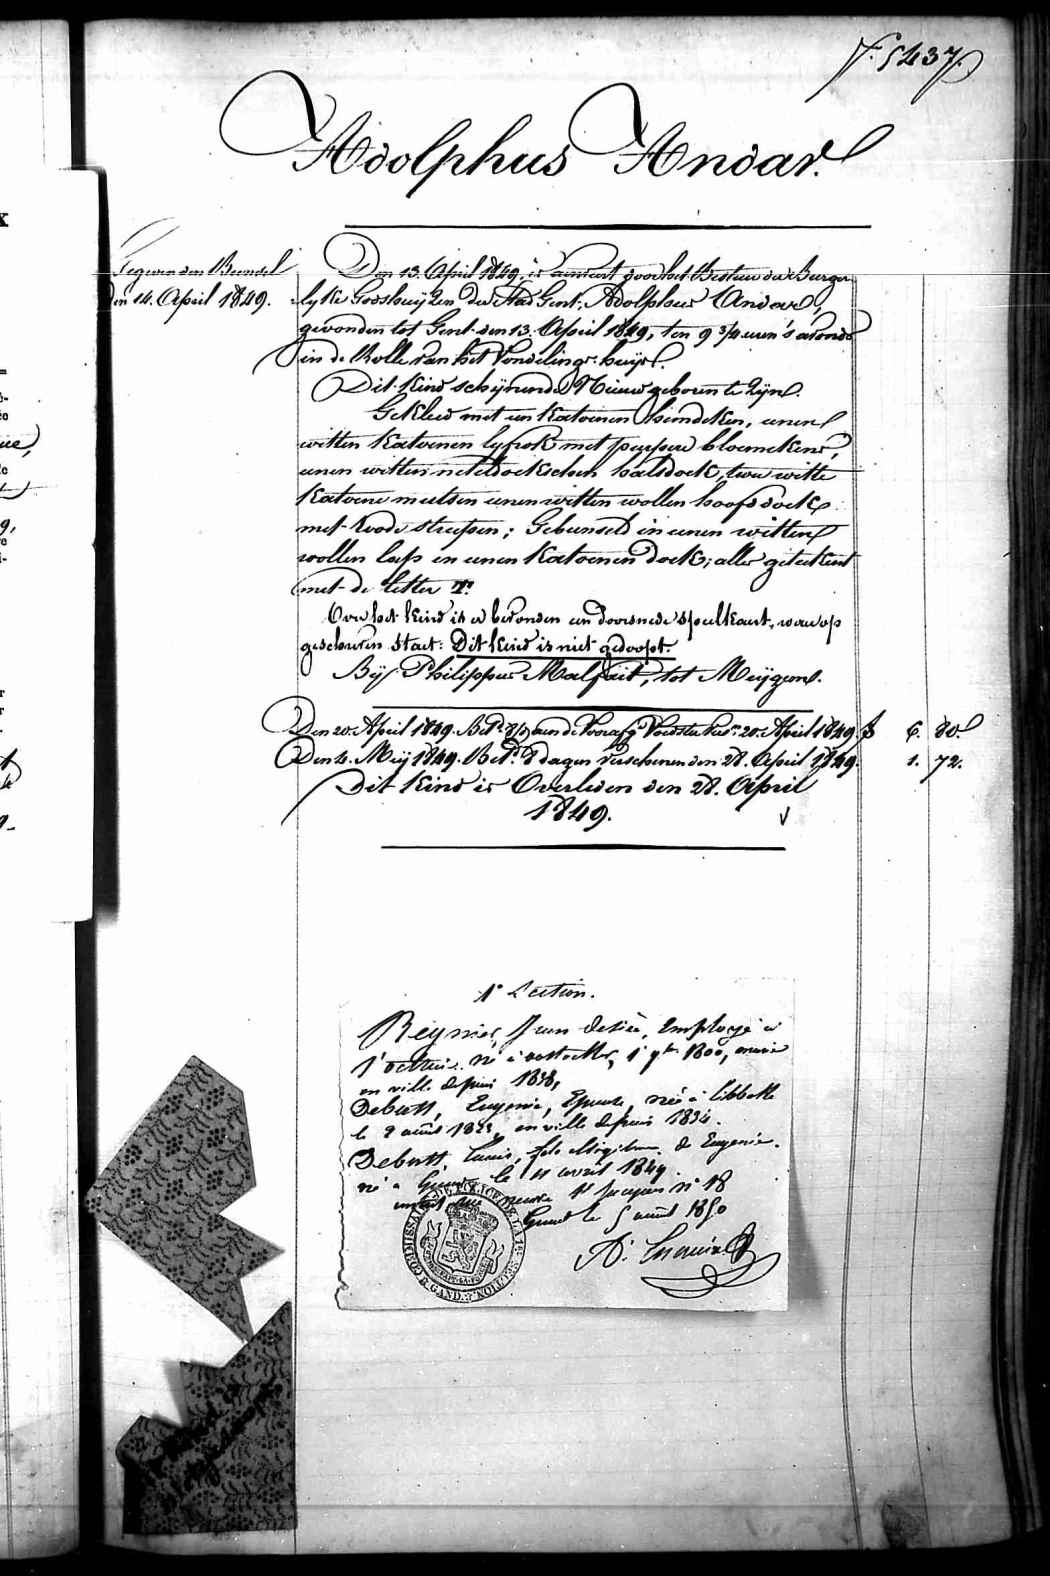 F. 5437.
Adolphus Andar.
Gegeven den Bundel
den 14. April 1849.
Den 13. April 1849, is aanveert door het Bestier der Burger-
lyke Godshuyzen der Stad Gent, Adolphus Andar,
gevonden tot Gent den 13. April 1849, ten 9 3/4 uren 's avonds
in de Rolle van het Vondelings-huys.
Dit kind schynende Nieuw geboren te zyn.
Gekleed met een katoenen hemdeken, eenen
witten katoenen lyfrok met purpere bloemekens,
eenen witten neteldoekschen halsdoek, twee witte
katoene mutsen eenen witten wollen hoofddoek
met roode streepen; Gebunseld in eenen witten
wollen lap en eenen katoenen doek; alles geteekent
met de letter T.
Over het kind is er bevonden een doorsnede speelkaart, waer op
geschreven staet: Dit kind is niet gedoopt.
By Philippus Malfait, tot Meygem.
Den 20. April 1849. Bet. aen de Voorafg. Voedster 20. April 1849. f 6. 80
Den 4. Mey 1849. Bet. 8 dagen verschenen den 28. April 1849. 1. 72.
Dit kind is Overleden den 28. April
1849.
1e Section.
Reynier, Jean désiré, Employé à
l'octroi né à 1800, 
en ville depuis 1838,
Debutt, Eugenie, Epouse, née à
le 9 août en ville depuis 1834.
Debutt, Louis, de Eugenie.
né à Gand le 11 avril 1849.
n° 18
Gand le 5 août 1850
COMMISSAIRE DE POLICE DE LA 1E SECTION
GAND